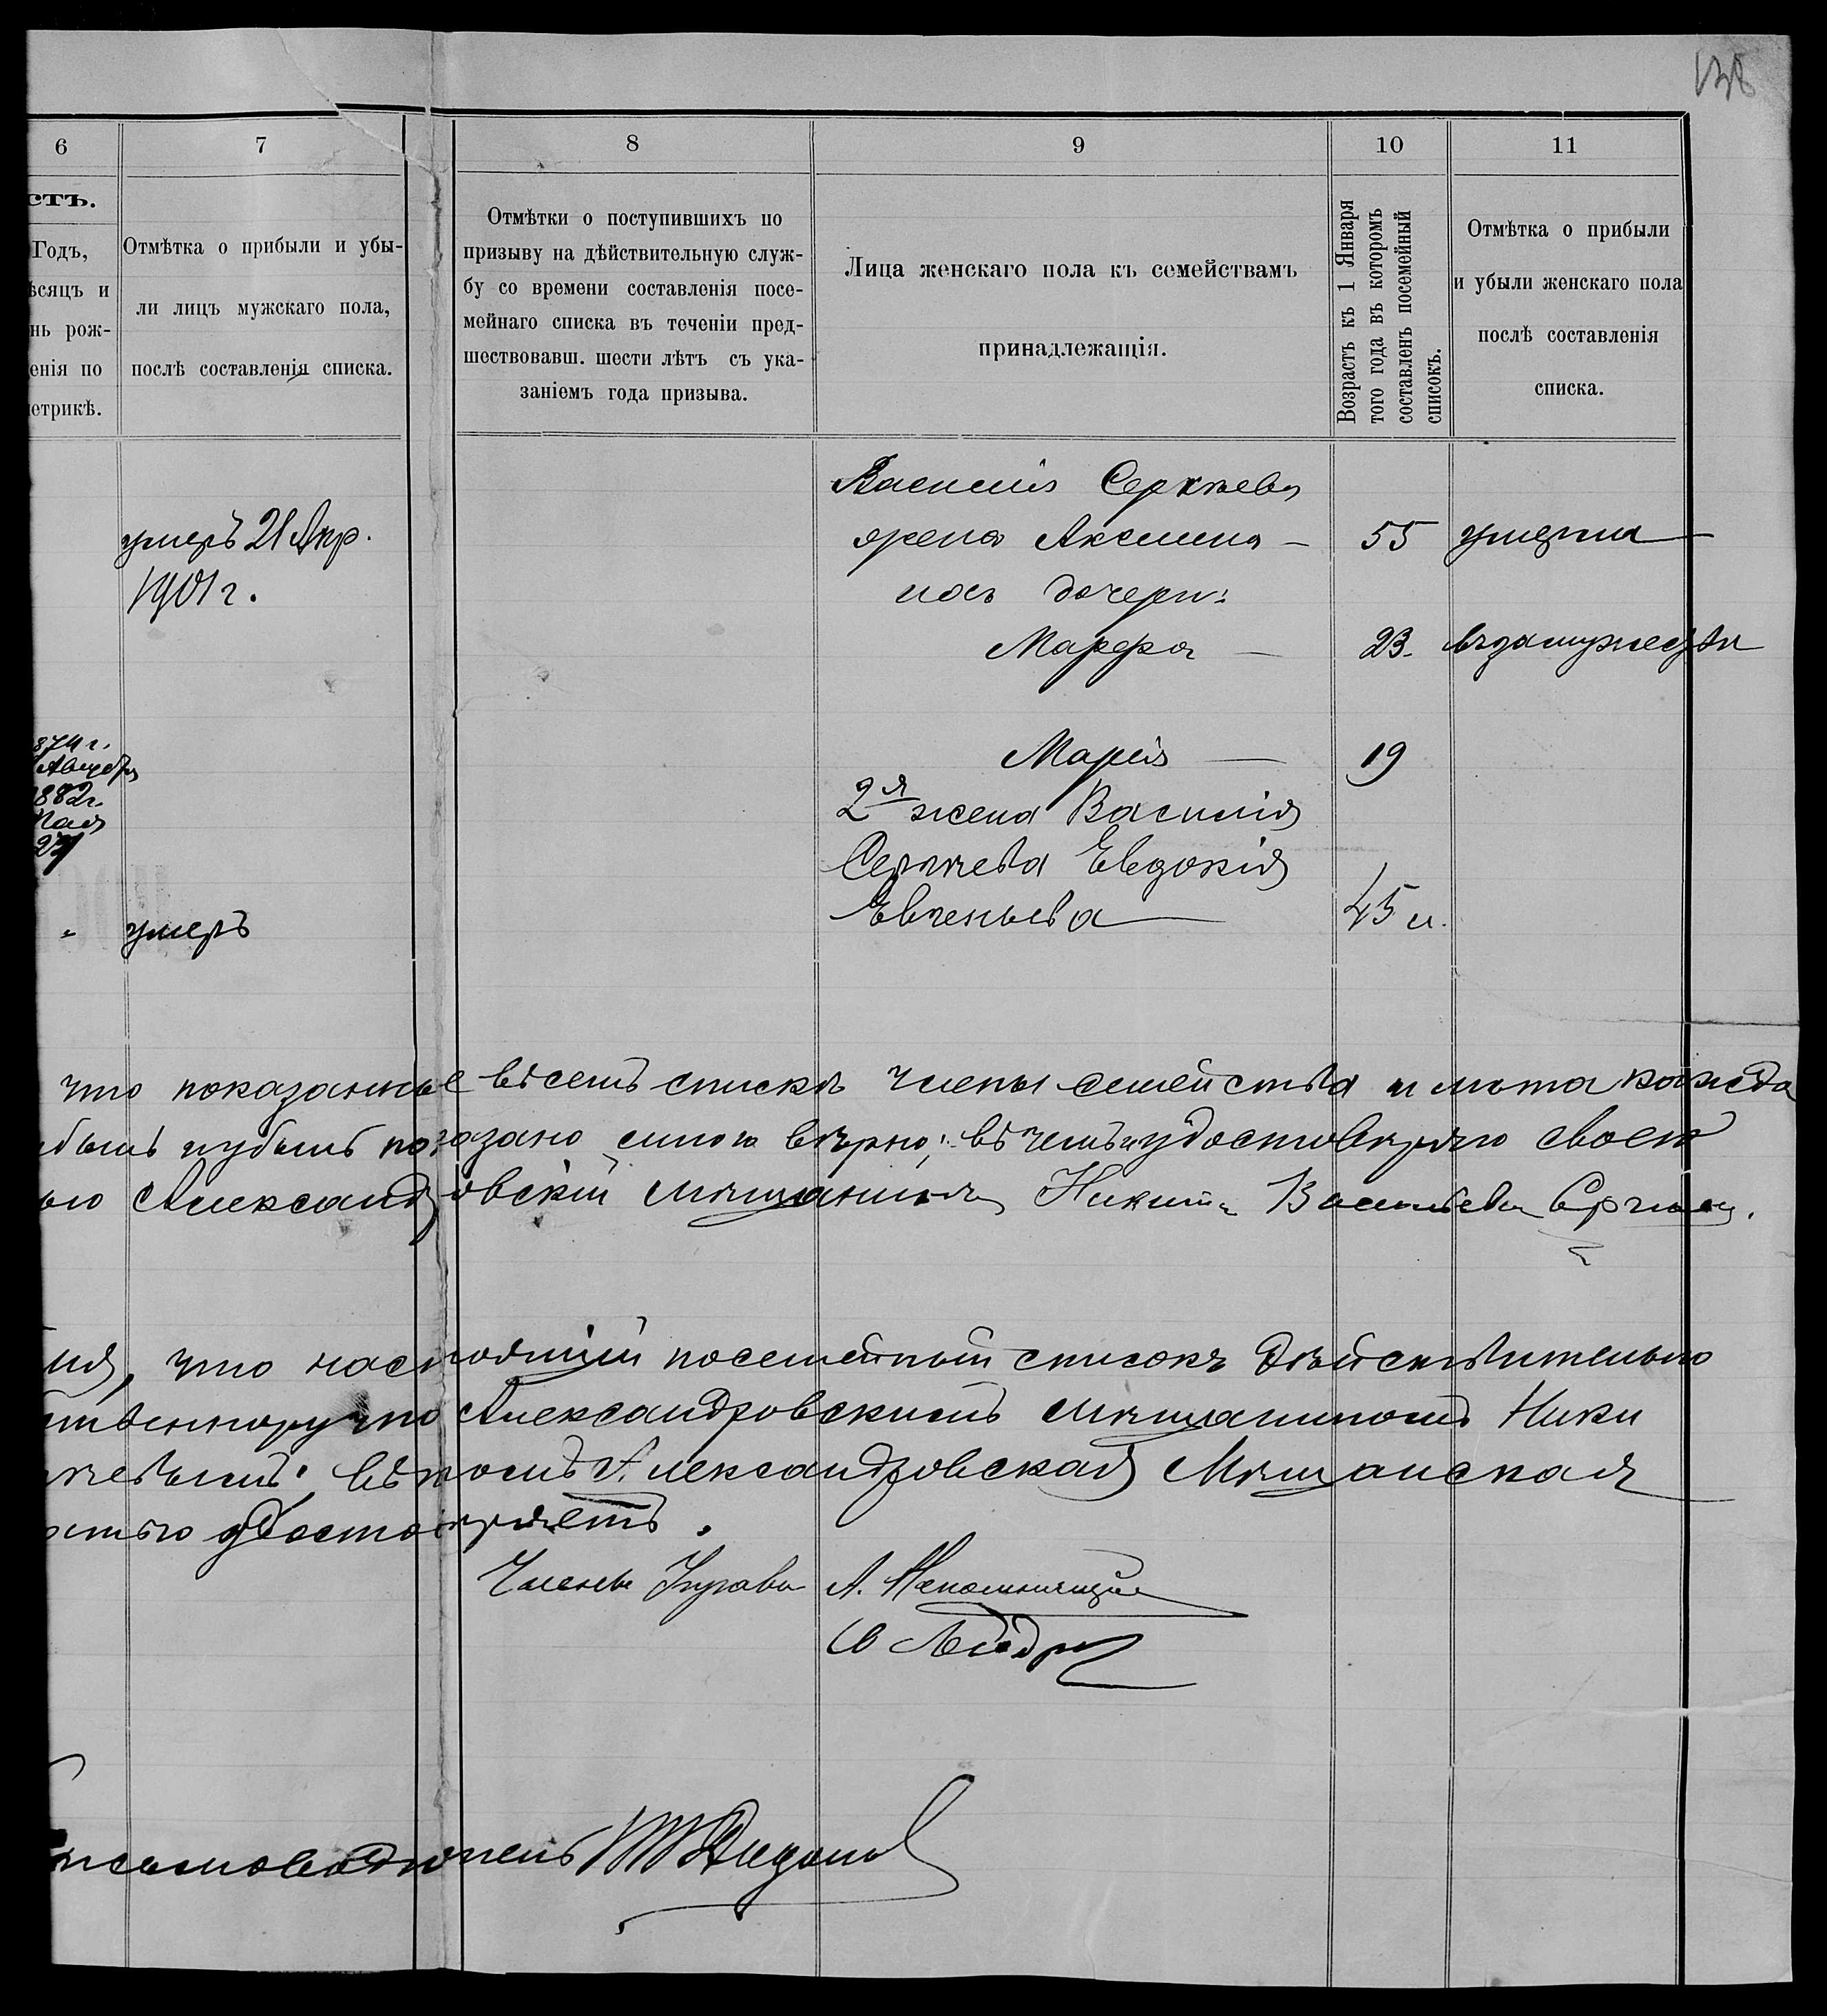 138
6 7 8 9 10 11
сть.
Годъ,
ѣсяцъ и
нь рож-
енія по
етрикѣ.
Отмѣтка о прибыли и убы-
ли лицъ мужскаго пола,
послѣ составленія списка.
Отмѣтки о поступившихъ по
призыву на дѣйствительную служ-
бу со времени составленія посе-
мейнаго списка въ теченіи пред-
шествовавш. шести лѣтъ съ ука-
заніемъ года призыва.
Лица женскаго пола къ семействамъ
принадлежащія.
Возрастъ къ 1 Января
того года въ которомъ
составленъ посемейный
списокъ.
Отмѣтка о прибыли
и убыли женскаго пола
послѣ составленія
списка.
Василія
жена 55 умерла
умеръ 21 Апр.
1901 г.
дочери:
Марфа — 23. въ замужествѣ
874 г.
882 г.
Мая
27
Марія — 19
2я жена Василія
Евдокія
45 л.
" умеръ
что показанные въ семъ спискѣ члены семейства и лѣта кажда
показано вѣрно, въ чемъ и удостовѣряю своею
Александровскій мѣщанинъ Никита Васильевъ
что настоящій посемейный списокъ дѣйствительно
ственноручно Александровскимъ мѣщаниномъ Ники
въ томъ Александровская Мѣщанская
удостовѣряетъ.
Члены Управы А.
исьмоводитель